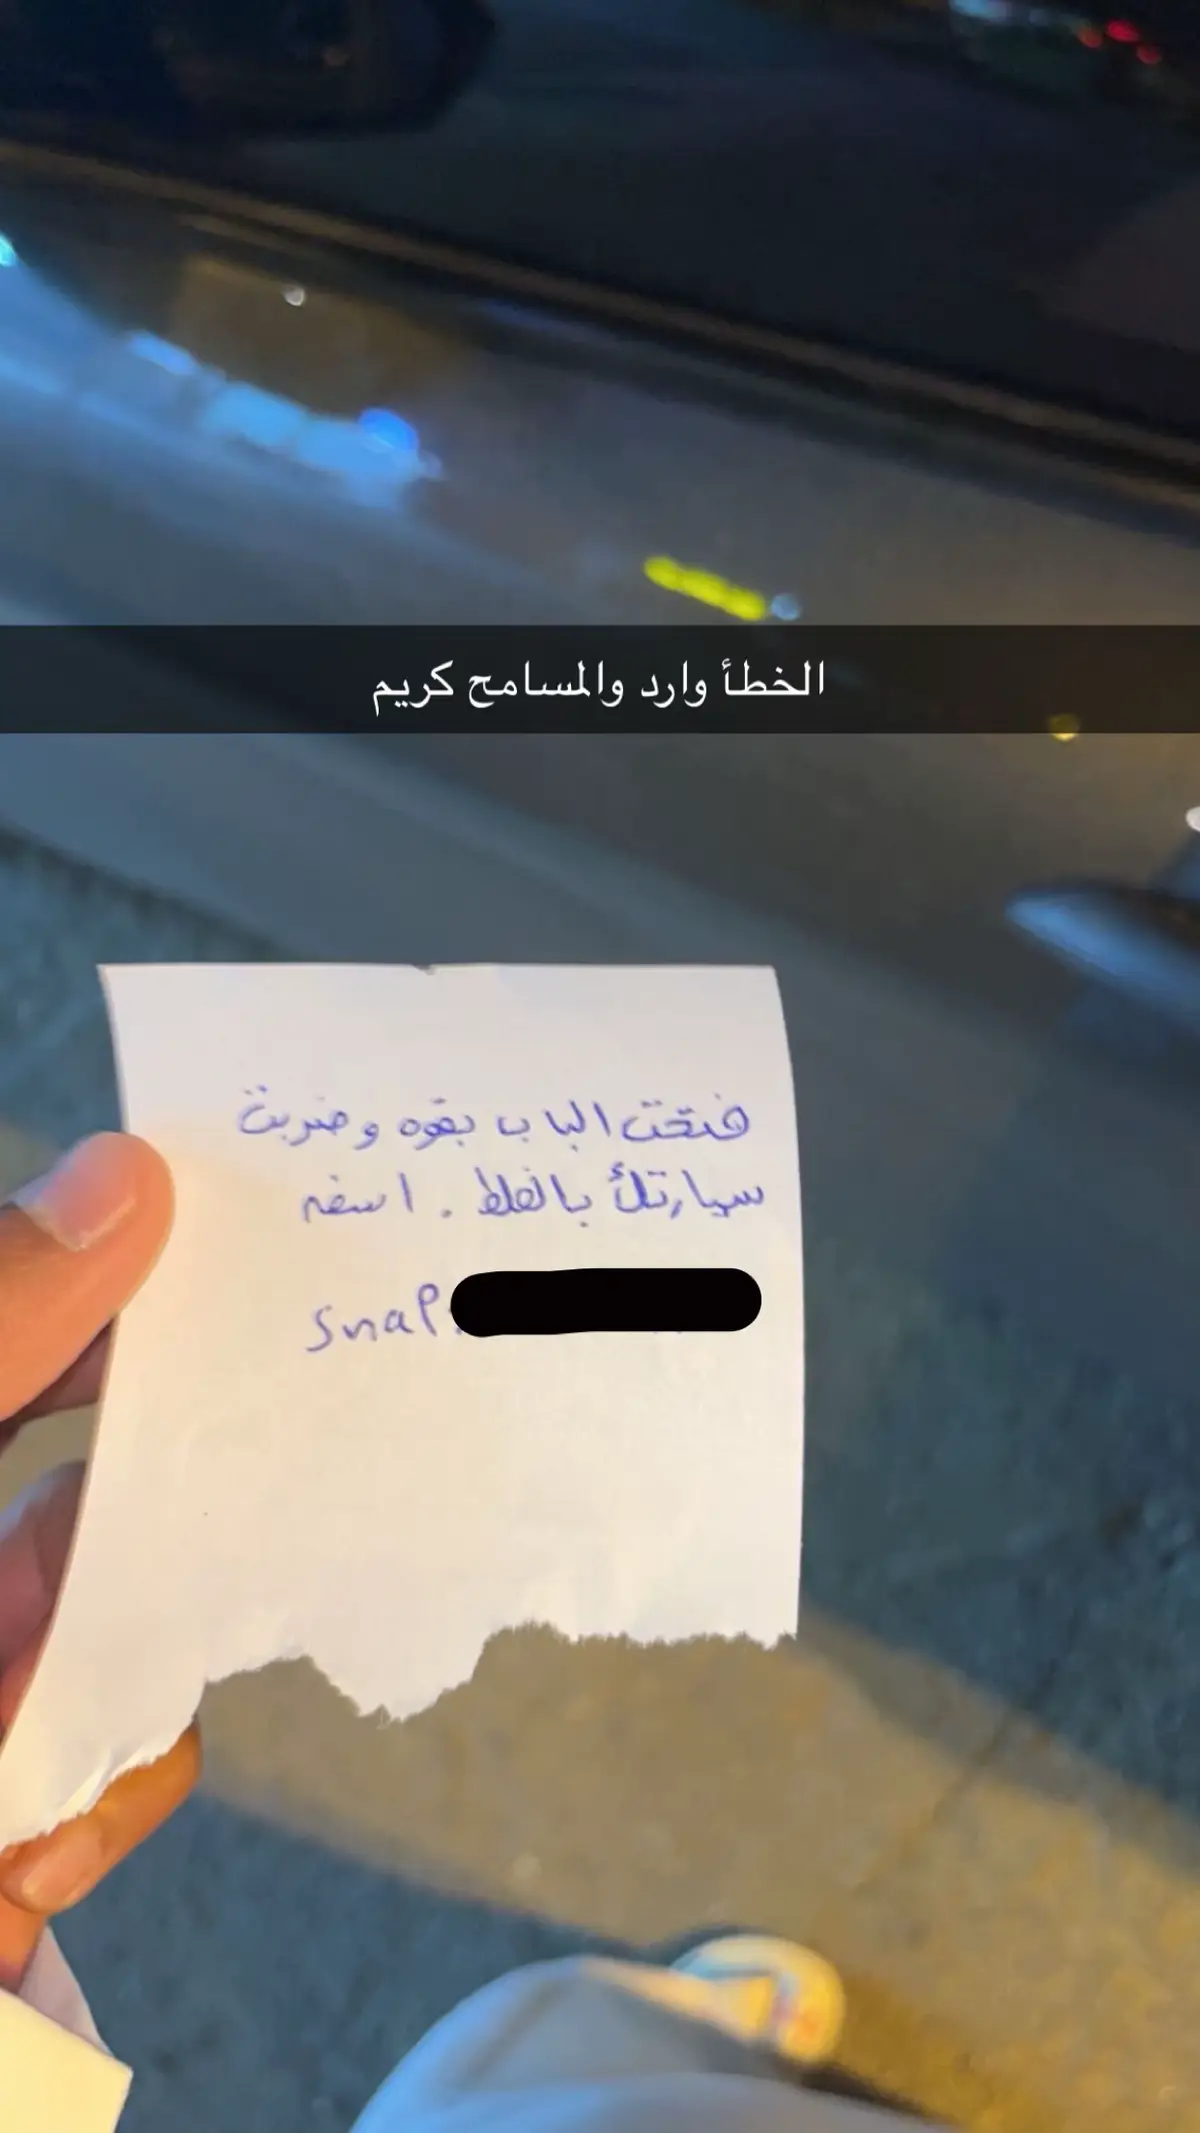 الخطأ وارد والمسامح كريم
فتحت الباب بقوه وضربت
سيارتك بالغلط . اسفه
snap: